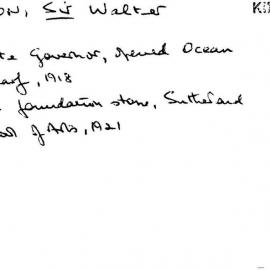 ON, Sir Walter Ki
te Governor, opened Ocean
arf, 1918
foundation stone, Sutherland
ool of Arts, 1921